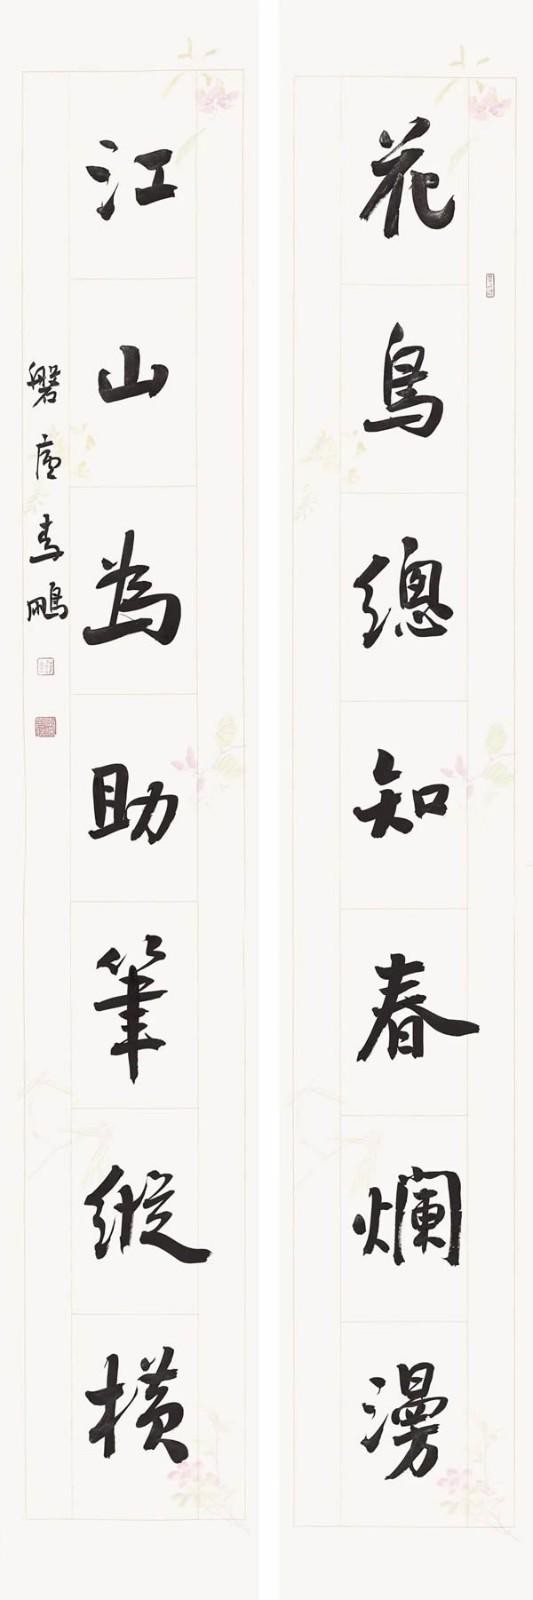 花鳥總知春爛漫
江山為助筆縱橫
磐廬春鵬